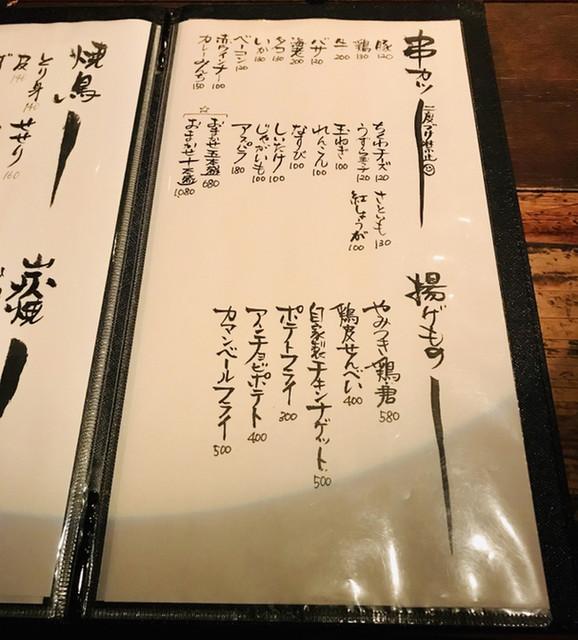 串カツ
二度づけ禁止
豚 120
鶏 130
牛 200
バサ 120
海老 200
いか 130
ベーコン 120
赤ウインナー 100
カレーみんち 150
ちくわチーズ 120
うずら玉子 120
玉ねぎ 100
れんこん 100
なすび 100
しいたけ 100
じゃがいも 100
アスパラ 180
☆
おまかせ五本盛 680
おまかせ十本盛 1,080
さといも 130
紅しょうが 100
揚げもの
やみつき鶏君 580
鶏皮せんべい 400
自家製チキンナゲット 500
ポテトフライ 300
アンチョビポテト 400
カマンベールフライ 500
焼鳥
とり身 140
皮 140
せせり 160
炭焼